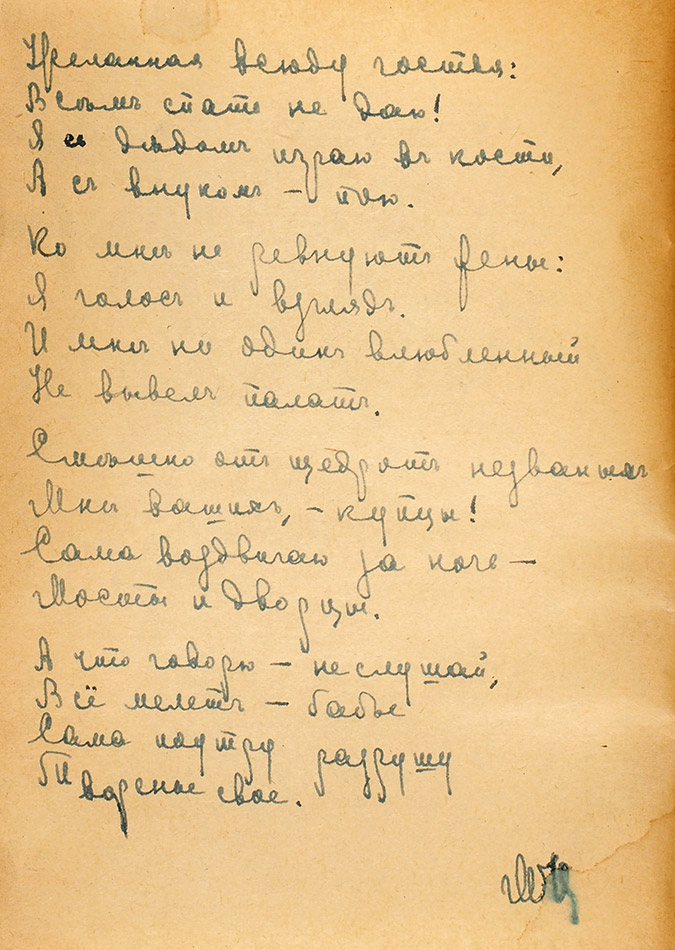 Желанная всюду гостья:
Всѣмъ спать не даю!
Я съ дѣдомъ играю въ кости,
А съ внукомъ — пою.
Ко мнѣ не ревнуютъ жены:
Я голосъ и взглядъ.
И мнѣ ни одинъ влюбленный
Не вывелъ палатъ.
Смѣшно отъ щедротъ незваныхъ
Мнѣ вашихъ, — купцы!
Сама воздвигаю за ночь —
Мосты и дворцы.
А что говорю — не слушай,
Всё мелетъ — бабье
Сама поутру разрушу
Творенье свое.
МЦ